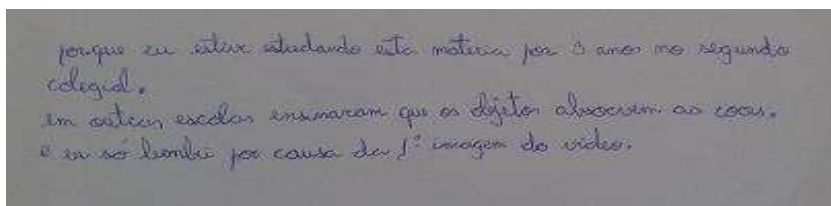 porque eu estive estudando esta materia por 3 anos no segundo
colegial.
em outras escolas ensinaram que os objetos absorvem as cores.
e eu só lembrei por causa da 1ª imagem do video.